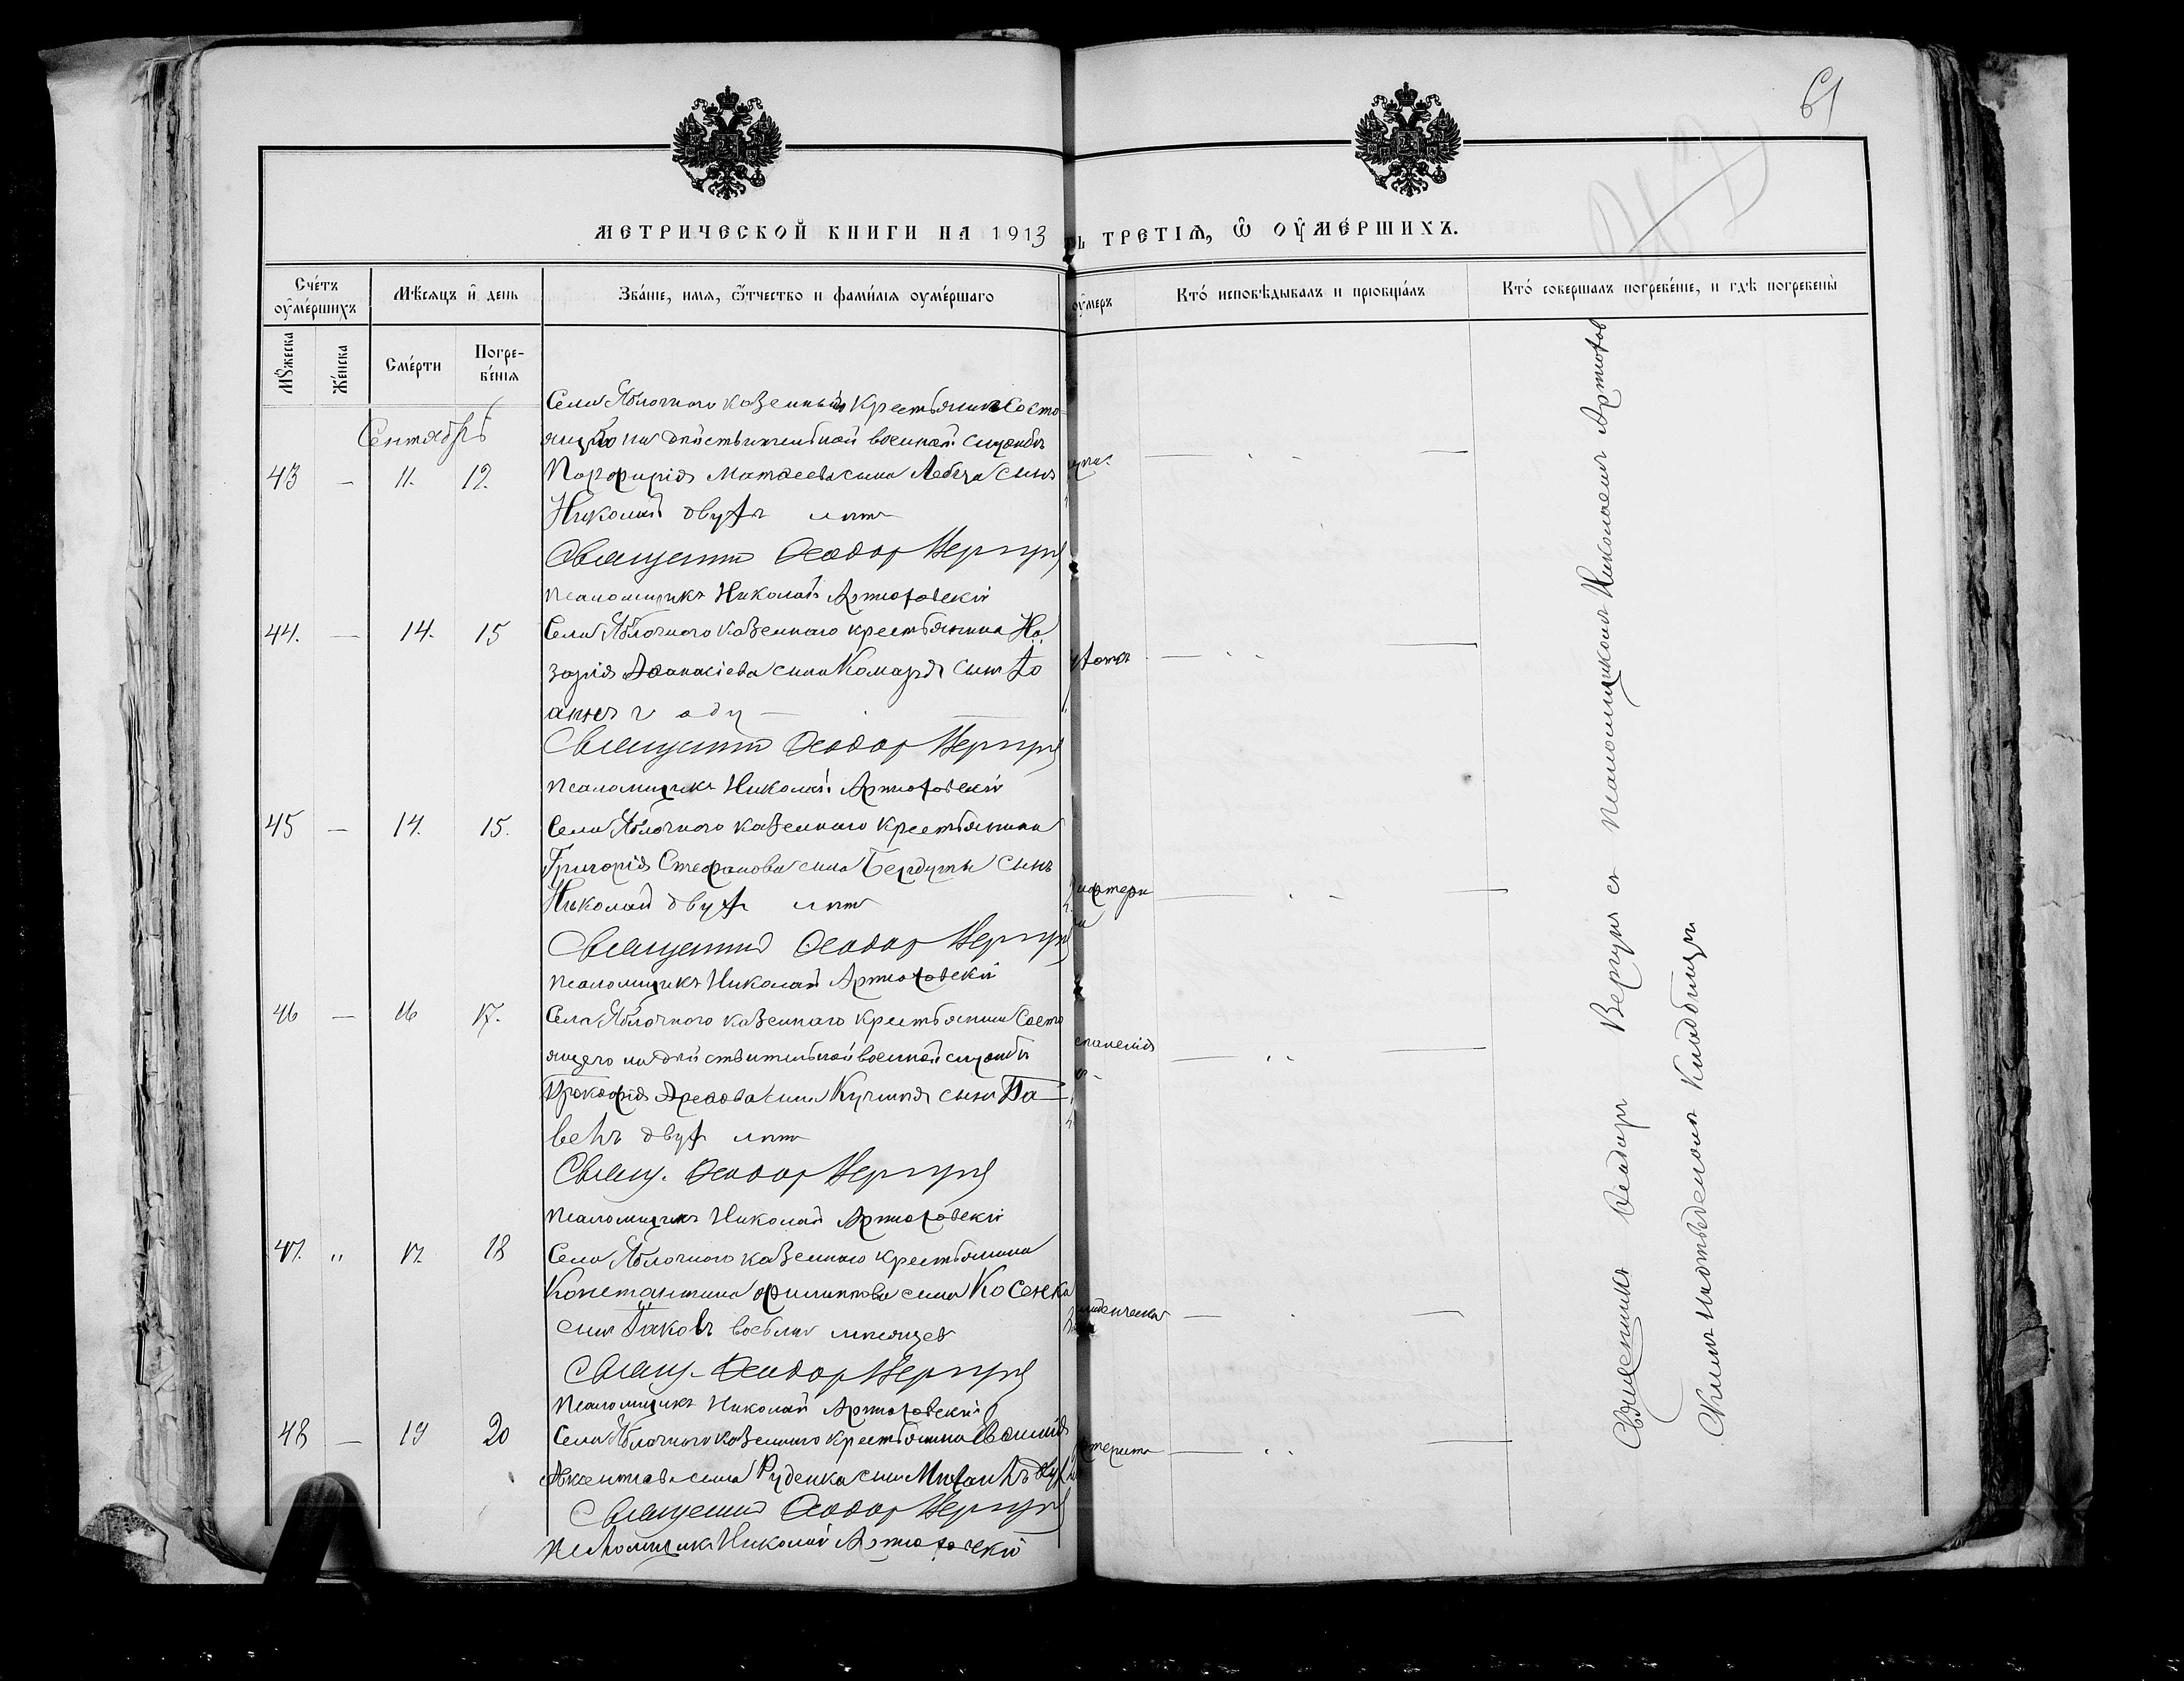 61
МЕТРИЧЕСКОЙ КНИГИ НА 1913
ТРЕТІѦ, Ѡ ОУМЕРШИХЪ.
Счетъ оумершихъ
Мѣсяцъ и день
Званіе, имя, ѿтчество и фамилія оумершаго
оумеръ
Кто исповѣдывалъ и пріобщалъ
Кто совершалъ погребеніе, и гдѣ погребены
Мꙋжеска
Женска
Смерти
Погре-
бенія
Сентябрь
Села Яблочного казенный крестьянин состо
ящаго на дѣйствительной военной службѣ
43 — 11. 12. Порфирія Матѳеева сына Лебедя сынъ
Николай двухъ лѣтъ
Священникъ Ѳеодоръ Вергунъ
Псаломщикъ Николай Артюховскій
44. — 14. 15 Села Яблочного казеннаго крестьянина На
зарія Аѳанасіева сына Комаря сынъ Іо
аннъ 2 оду
Священникъ Ѳеодоръ Вергунъ
Псаломщикъ Николай Артюховскій
45 — 14. 15. Села Яблочного казеннаго крестьянина
Григорія Стефанова сына Бердуты сынъ
Николай двухъ лѣтъ
Священникъ Ѳеодоръ Вергунъ
Псаломщикъ Николай Артюховскій
46 — 16 17. Села Яблочного казеннаго крестьянина Состо
ящего на дѣйствительной военной службѣ
Прокофія сына сынъ Па
велъ двухъ лѣтъ
Свящ. Ѳеодоръ Вергунъ
Псаломщикъ Николай Артюховскій
47. " 17. 18 Села Яблочного казеннаго крестьянина
Константина Филиппова сына Косенка
сынъ Іаковъ мѣсяцев
Свящ. Ѳеодоръ Вергунъ
Псаломщикъ Николай Артюховскій
48 — 19 20 Села Яблочного казеннаго крестьянина
сына Руденка сынъ Михаилъ
Священникъ Ѳеодоръ Вергунъ
Псаломщикъ Николай Артюховскій
Священникъ Ѳеодоръ Вергунъ съ псаломщикомъ Николаемъ Артюхов
кладбищѣ